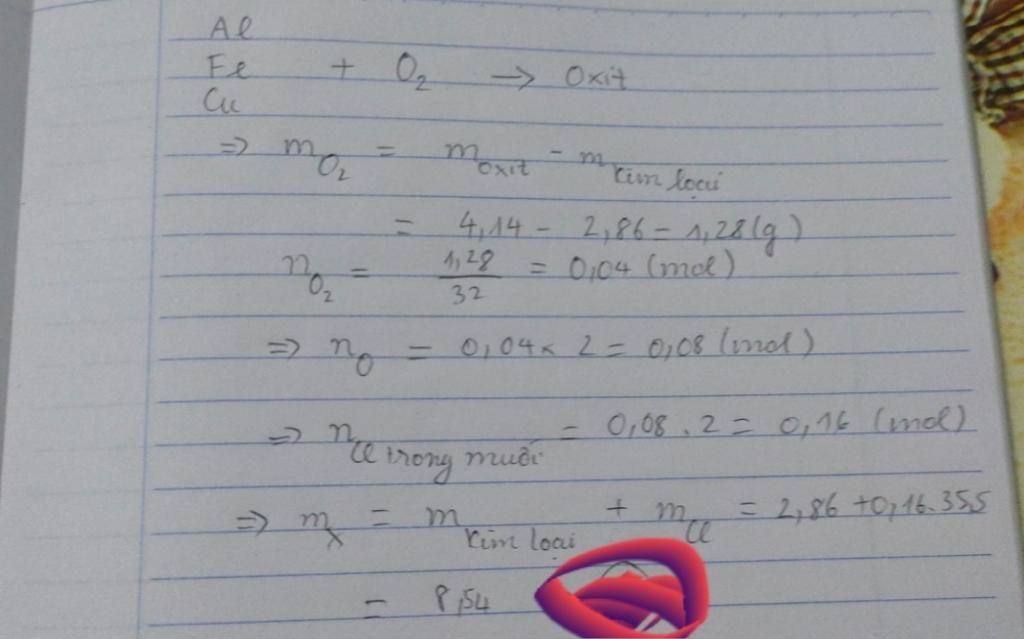 Al
Fe + O₂ → Oxit
Cu
=> m O₂ = m oxit - m kim loại
= 4,14 - 2,86 = 1,28 (g)
n O₂ = 1,28 / 32 = 0,04 (mol)
=> n O = 0,04 x 2 = 0,08 (mol)
=> n Cl trong muối = 0,08 . 2 = 0,16 (mol)
=> m X = m kim loại + m Cl = 2,86 + 0,16. 35,5
= 8,54